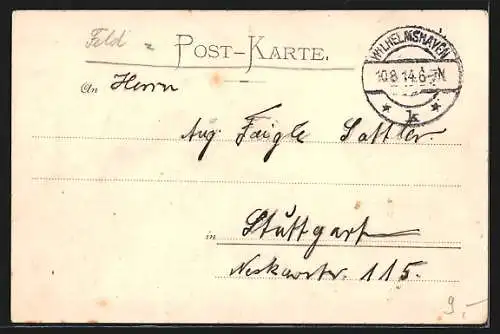 Feld =
POST-KARTE.
WILHELMSHAVEN
10.8.14.6-7N.
* k *
An Herrn
Aug. Faigle Sattler
in Stuttgart
Neckarstr. 115.
9.-